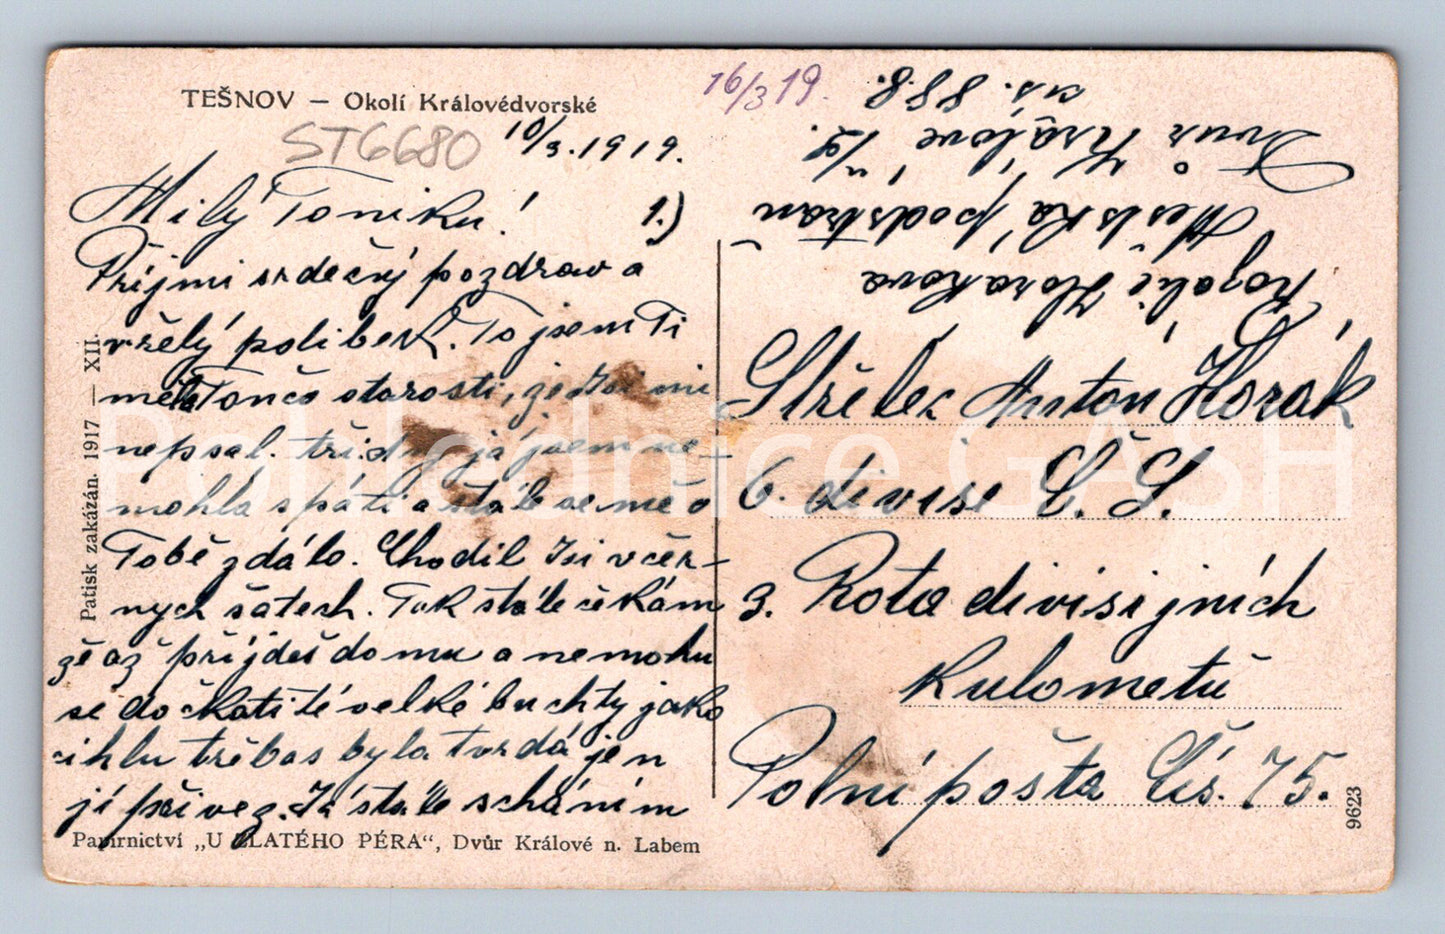 TEŠNOV — Okolí Králové­dvorské
ST6680
10/3. 1919.
Milý Toníku! 1.)
Příjmi srdečný pozdrav a
vřelý polibek. To jsem Ti
měla Tončo starosti, že Jsi mi
nepsal. tři dny já jsem ne-
mohla spáti a stále se mě o
Tobě zdálo. Chodil Jsi v čer-
nych šatech. Tak stále čekám
že až příjdeš domu a nemohu
se dočkati té velké buchty jako
cihlu třebas byla tvrdá jen
jí přivez. Já stále scháním
Papírnictví „U ZLATÉHO PÉRA“, Dvůr Králové n. Labem
Patisk zakázán. 1917 — XII.
16/3 19.
Rozalie Horakova
Městská podstraň
Dvur Králove n/L.
čís. 888.
Střelec Antón Horák
6. divise Č. S.
3. Rota divisijních
kulometů
Polní pošta Čís. 75.
9623
Pohlednice GASH